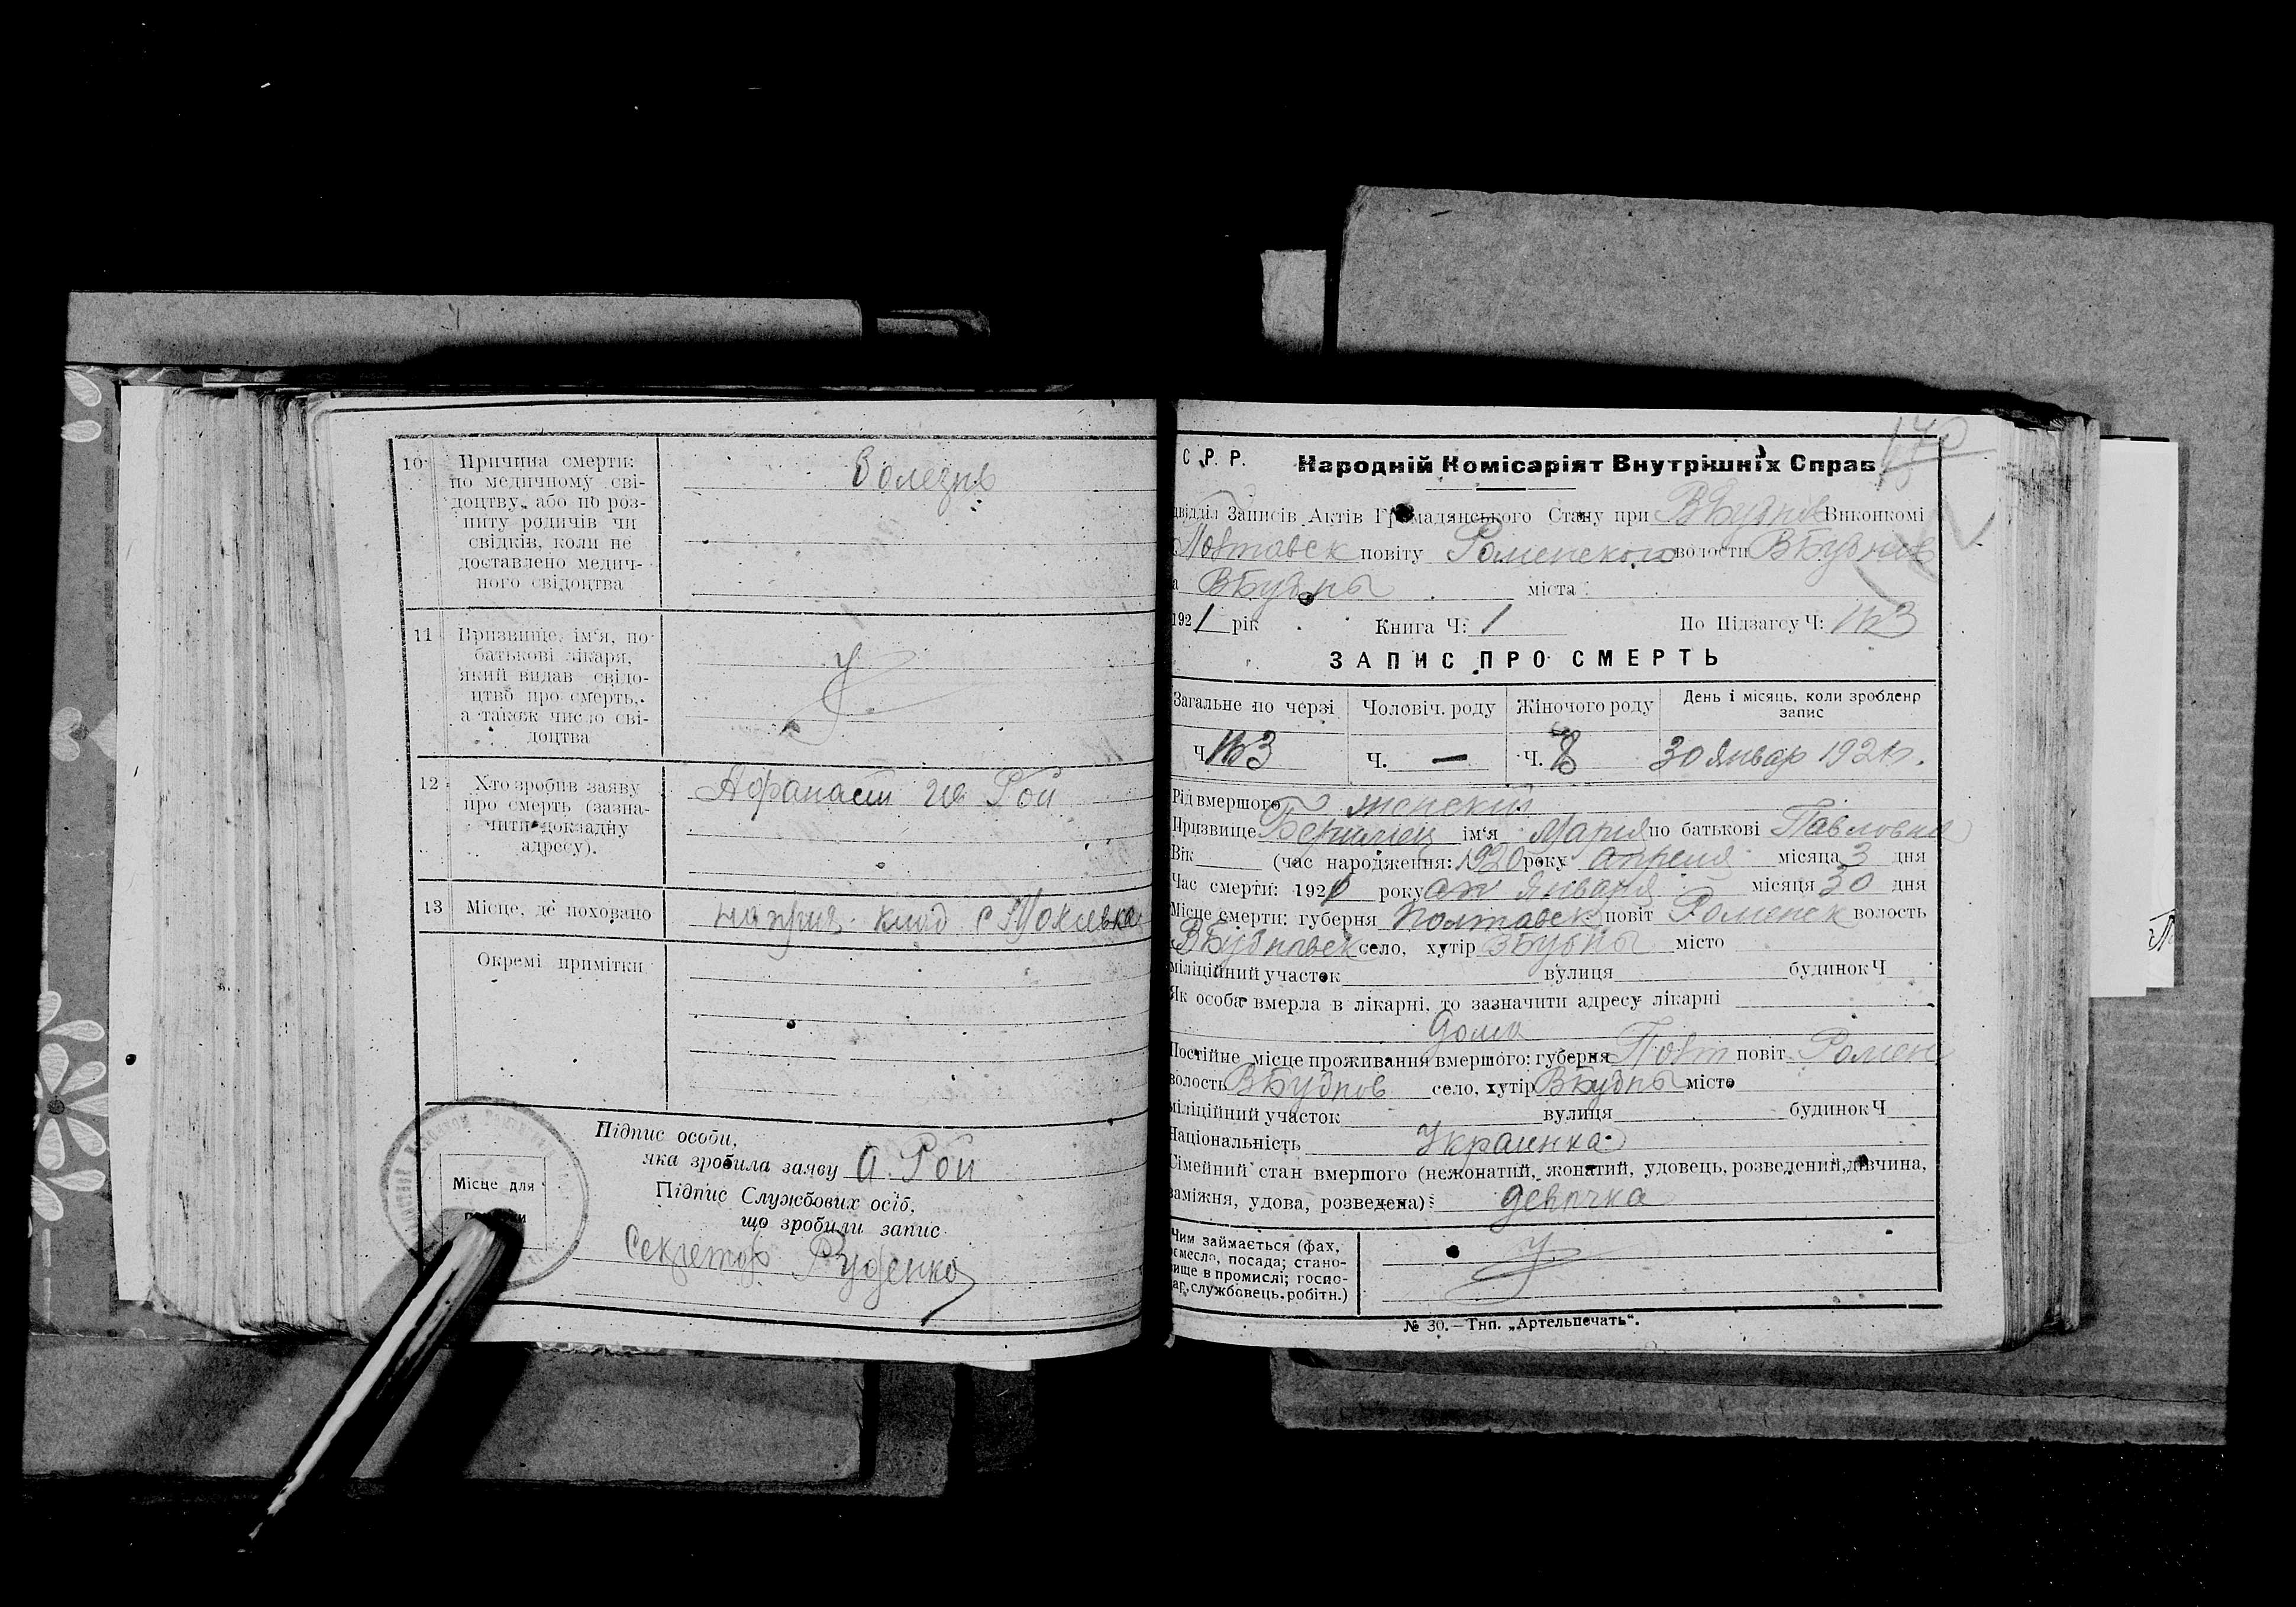 10
Причина смерти:
по медичному сві-
доцтву, або по роз-
питу родичів чи
свідків, коли не
доставлено медич-
ного свідоцтва
Болезнь
11
Призвище, ім'я, по
батькові лікаря,
який видав свідо-
цтво про смерть,
а також число сві-
доцтва
12
Хто зробив заяву
про смерть (зазна-
чити докладну
адресу).
Рой
13
Місце, де поховано
клад с
Окремі примітки
Підпис особи,
яка зробила заяву А. Рой
Підпис Службових осіб,
що зробили запис
Місце для
Секретар Руденко
С. Р. Р. Народній Комісаріят Внутрішніх Справ
Записів Актів Громадянського Стану при ВБубнов Виконкомі
Полтавск повіту Роменского волости ВБубнов
ВБубны міста
1921 рік Книга Ч: 1 По Підзагсу Ч:
ЗАПИС ПРО СМЕРТЬ
Загальне по черзі Чоловіч. роду Жіночого роду День і місяць, коли зроблено
запис
Ч. Ч. — Ч. 30 Январ 1921
Рід вмершого женский
Призвище ім'я Мария по батькові Павловна
Вік (час народження: 1920 року апреля місяца 3 дня
Час смерти: 1921 року января місяця 30 дня
Місце смерти: губерня Полтавск повіт Роменск волость
ВБубновск село, хутір ВБубны місто
міліційний участок вулиця будинок Ч
Як особа вмерла в лікарні, то зазначити адресу лікарні
дома
Постійне місце проживання вмершого: губерня Полт повіт Ромен
волость ВБубнов село, хутір ВБубны місто
міліційний участок вулиця будинок Ч
Національність Украинка
Сімейний стан вмершого (нежонатий, жонатий, удовець, розведений, дівчина,
заміжня, удова, розведена): девочка
Чим займається (фах,
ремесло, посада; стано-
вище в промислі; госпо-
дар, службовець, робітн.)
№ 30.—Тип. „Артельпечать“.